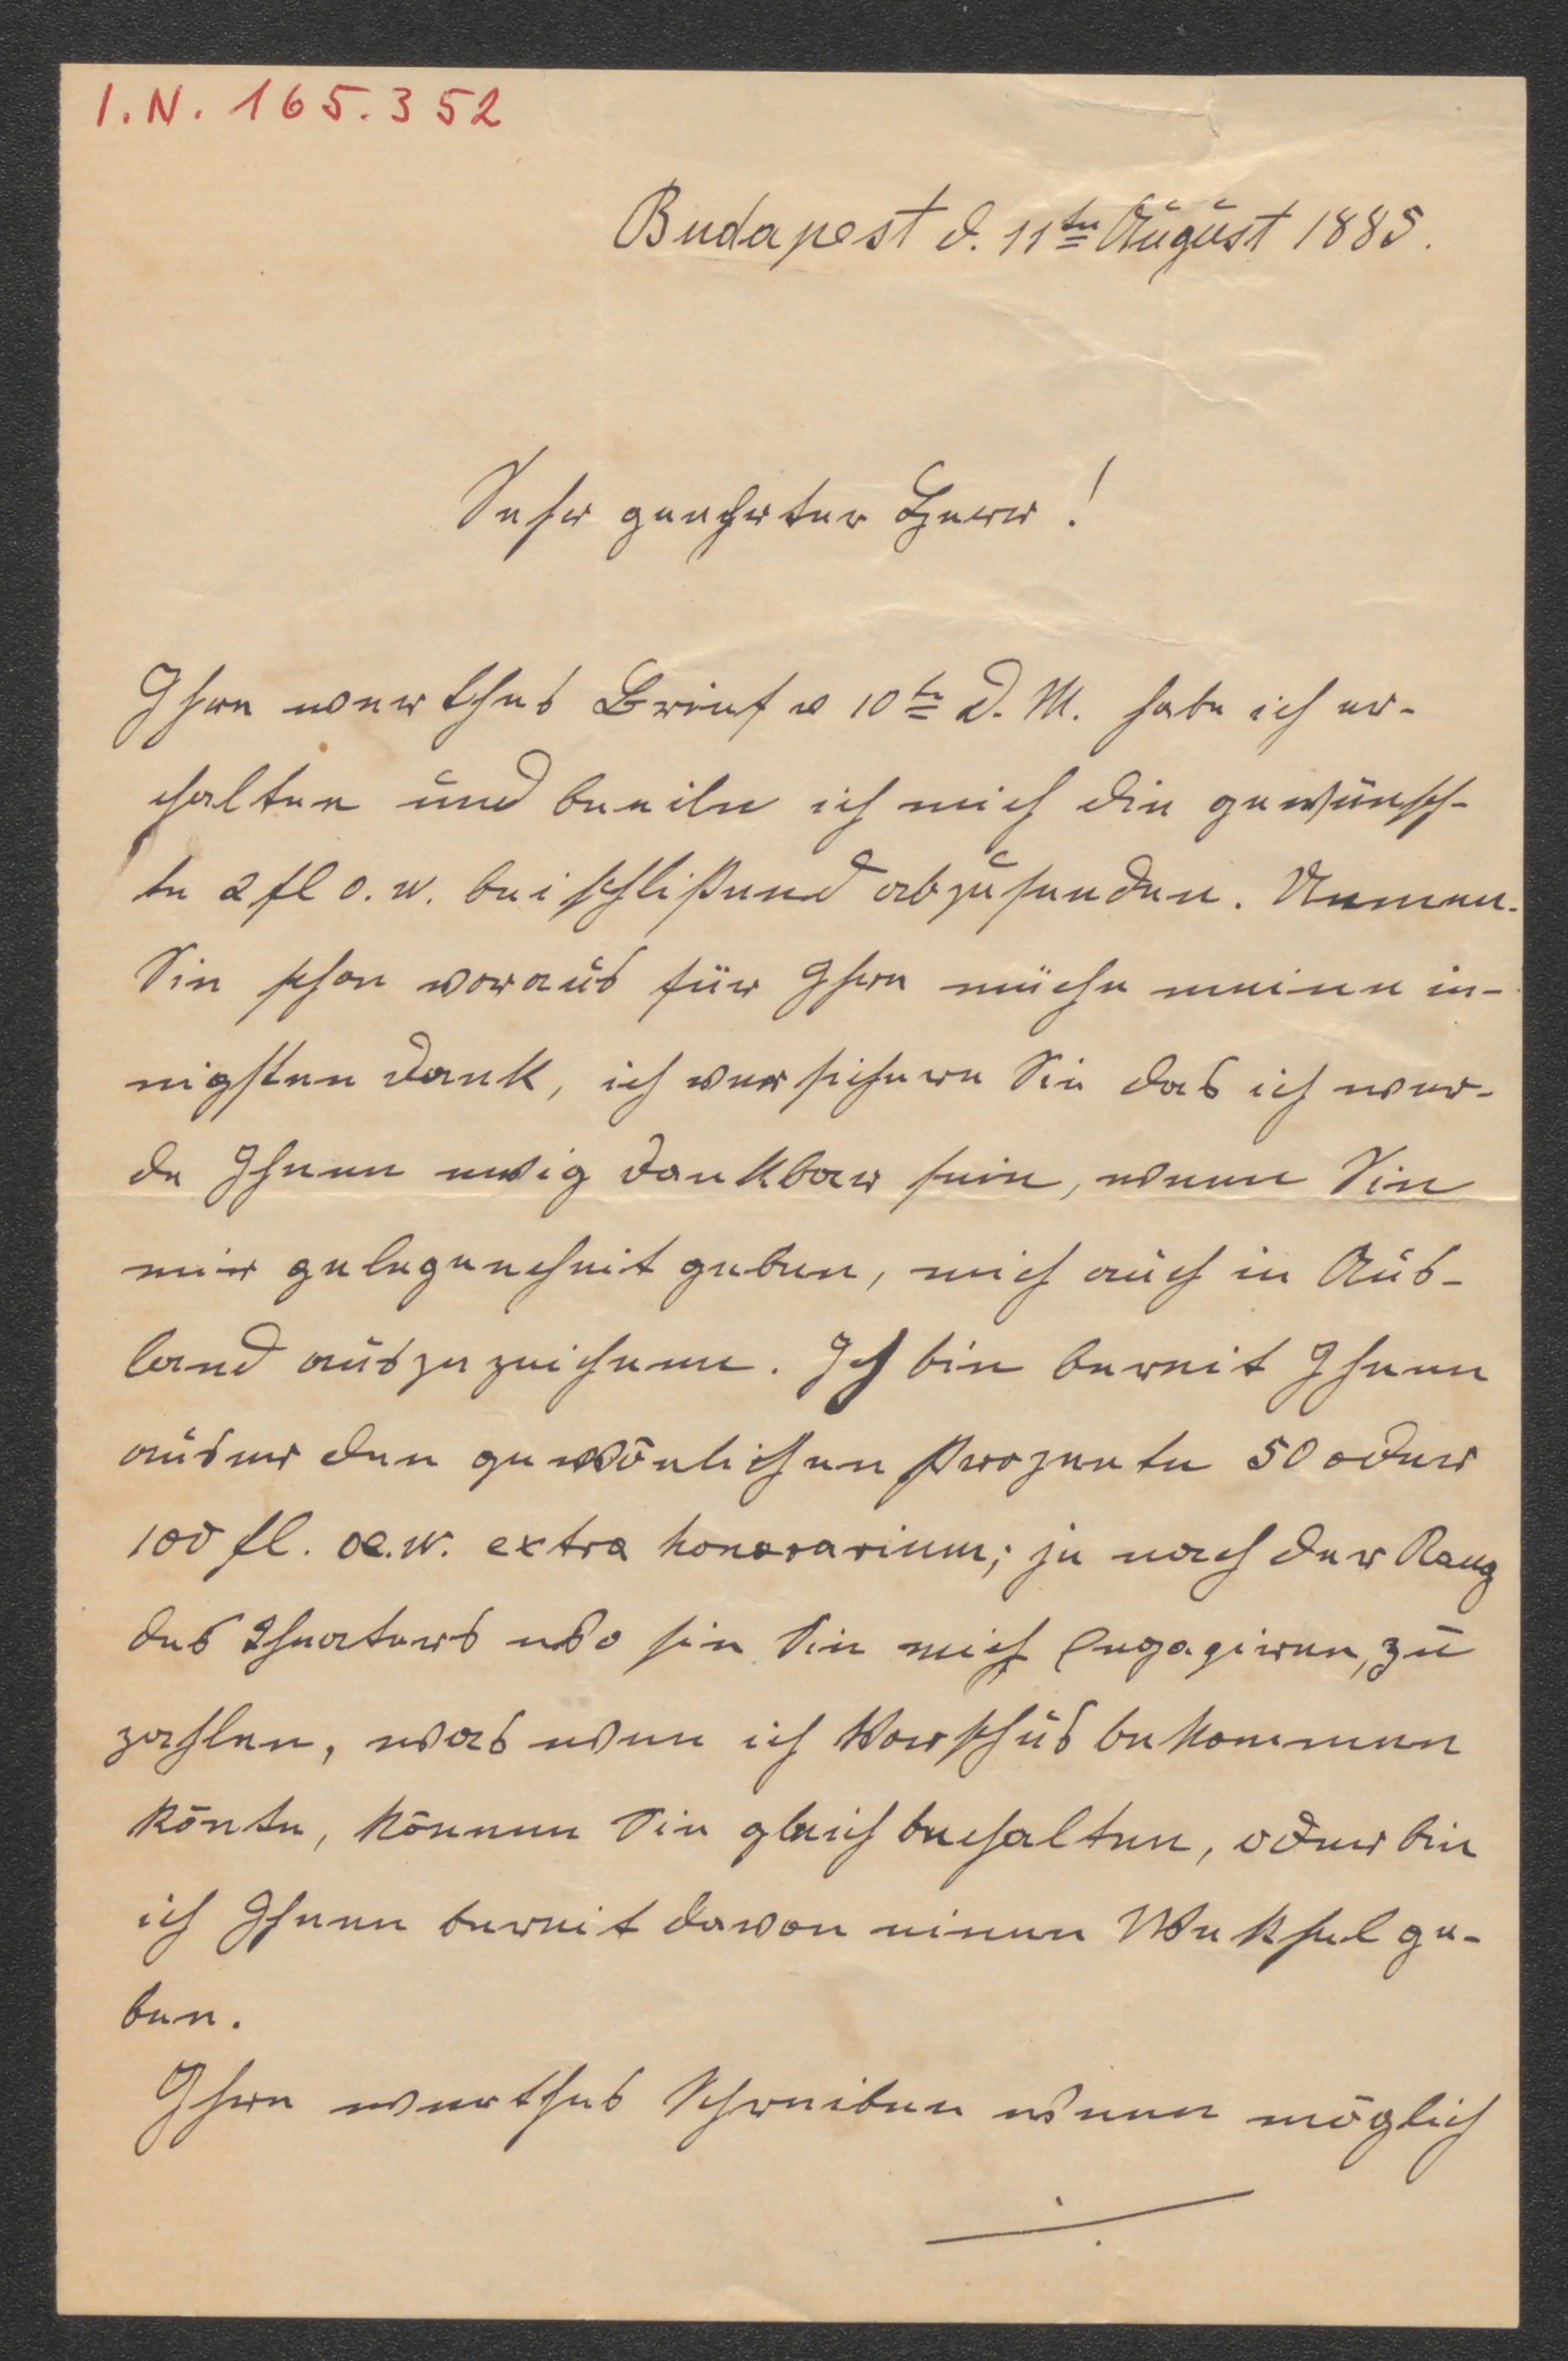 I.N. 165.352
Budapest d. 11ten August 1885.
Sehr geehrter Herr!
Ihre werthes Brief v 10te d. M. habe ich er-
halten und beeile ich mich die gewünsch-
te 2 fl o. w. beischlißend abzusenden. Nemen
Sie schon voraus für Ihre mühe meine in-
nigsten dank, ich versichere Sie das ich wer-
de Ihnen ewig dankbar sein, wenn Sie
mir gelegenheit geben, mich auch in Aus-
land auszuzeichnen. Ich bin bereit Ihnen
auser den gewönlichen Prozente 50 oder
100 fl. oe. w. extra honorarium; je nach der Rang
des Theaters wo hin Sie mich Engagiren, zu
zahlen, was wen ich Vorschus bekommen
könte, können Sie gleich behalten, oder bin
ich Ihnen bereit davon einen Weksel ge-
ben.
Ihre werthes Schreiben wenn möglich